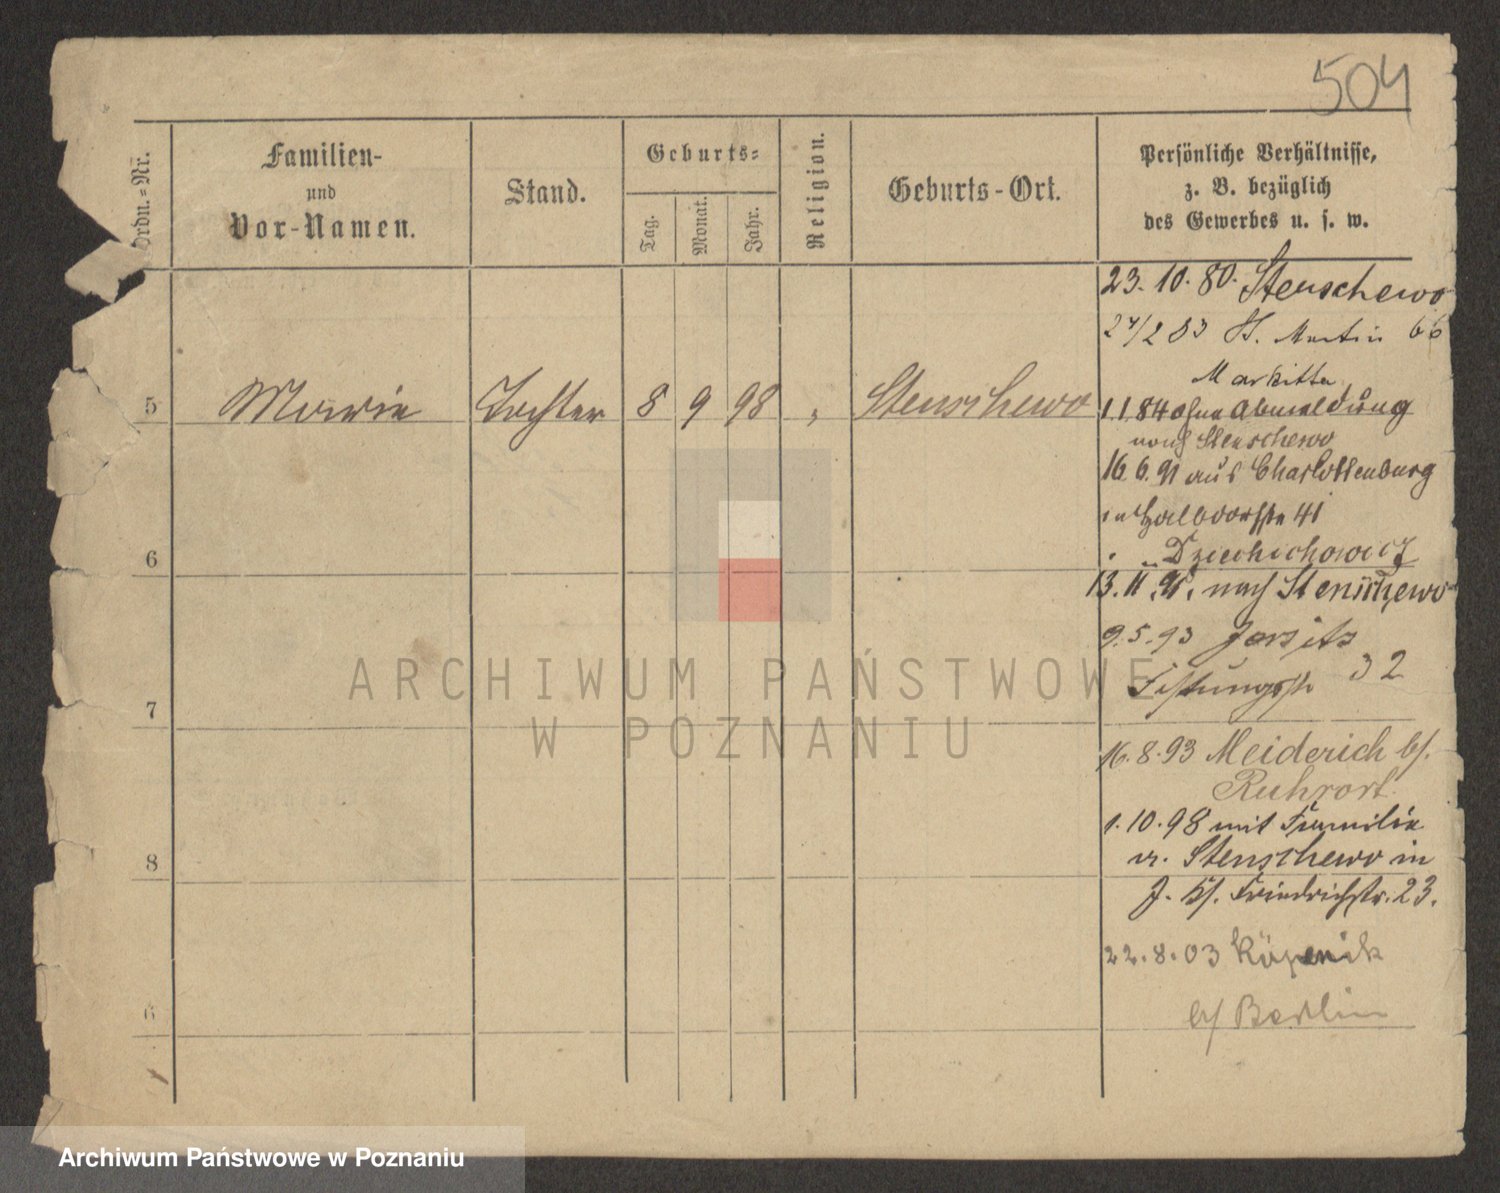 504
Ordn.-Nr.
Familien-
und
Vor-Namen.
Stand.
Geburts-
Tag.
Monat.
Jahr.
Religion.
Geburts-Ort.
Persönliche Verhältnisse,
z. B. bezüglich
des Gewerbes u. s. w.
23. 10. 80. Stenschewo
St. Martin 66
Markitta
5 Marie Tochter 8 9 98 " Stenschewo
1.1.84 ohne Abmeldung
nach Stenschewo
16. 6. 91 aus Charlottenburg
in Halbdorfstr 41
6
nach Stenschewo
9. 5. 93 Jersitz
Festungsstr 32
7
16. 8. 93 Meiderich b/.
Ruhrort.
1. 10. 98 mit Familie
v. Stenschewo in
8
J. Friedrichstr. 23.
22. 8. 03 Köpenik
b/ Berlin
6
ARCHIWUM PAŃSTWOWE
W POZNANIU
Archiwum Państwowe w Poznaniu